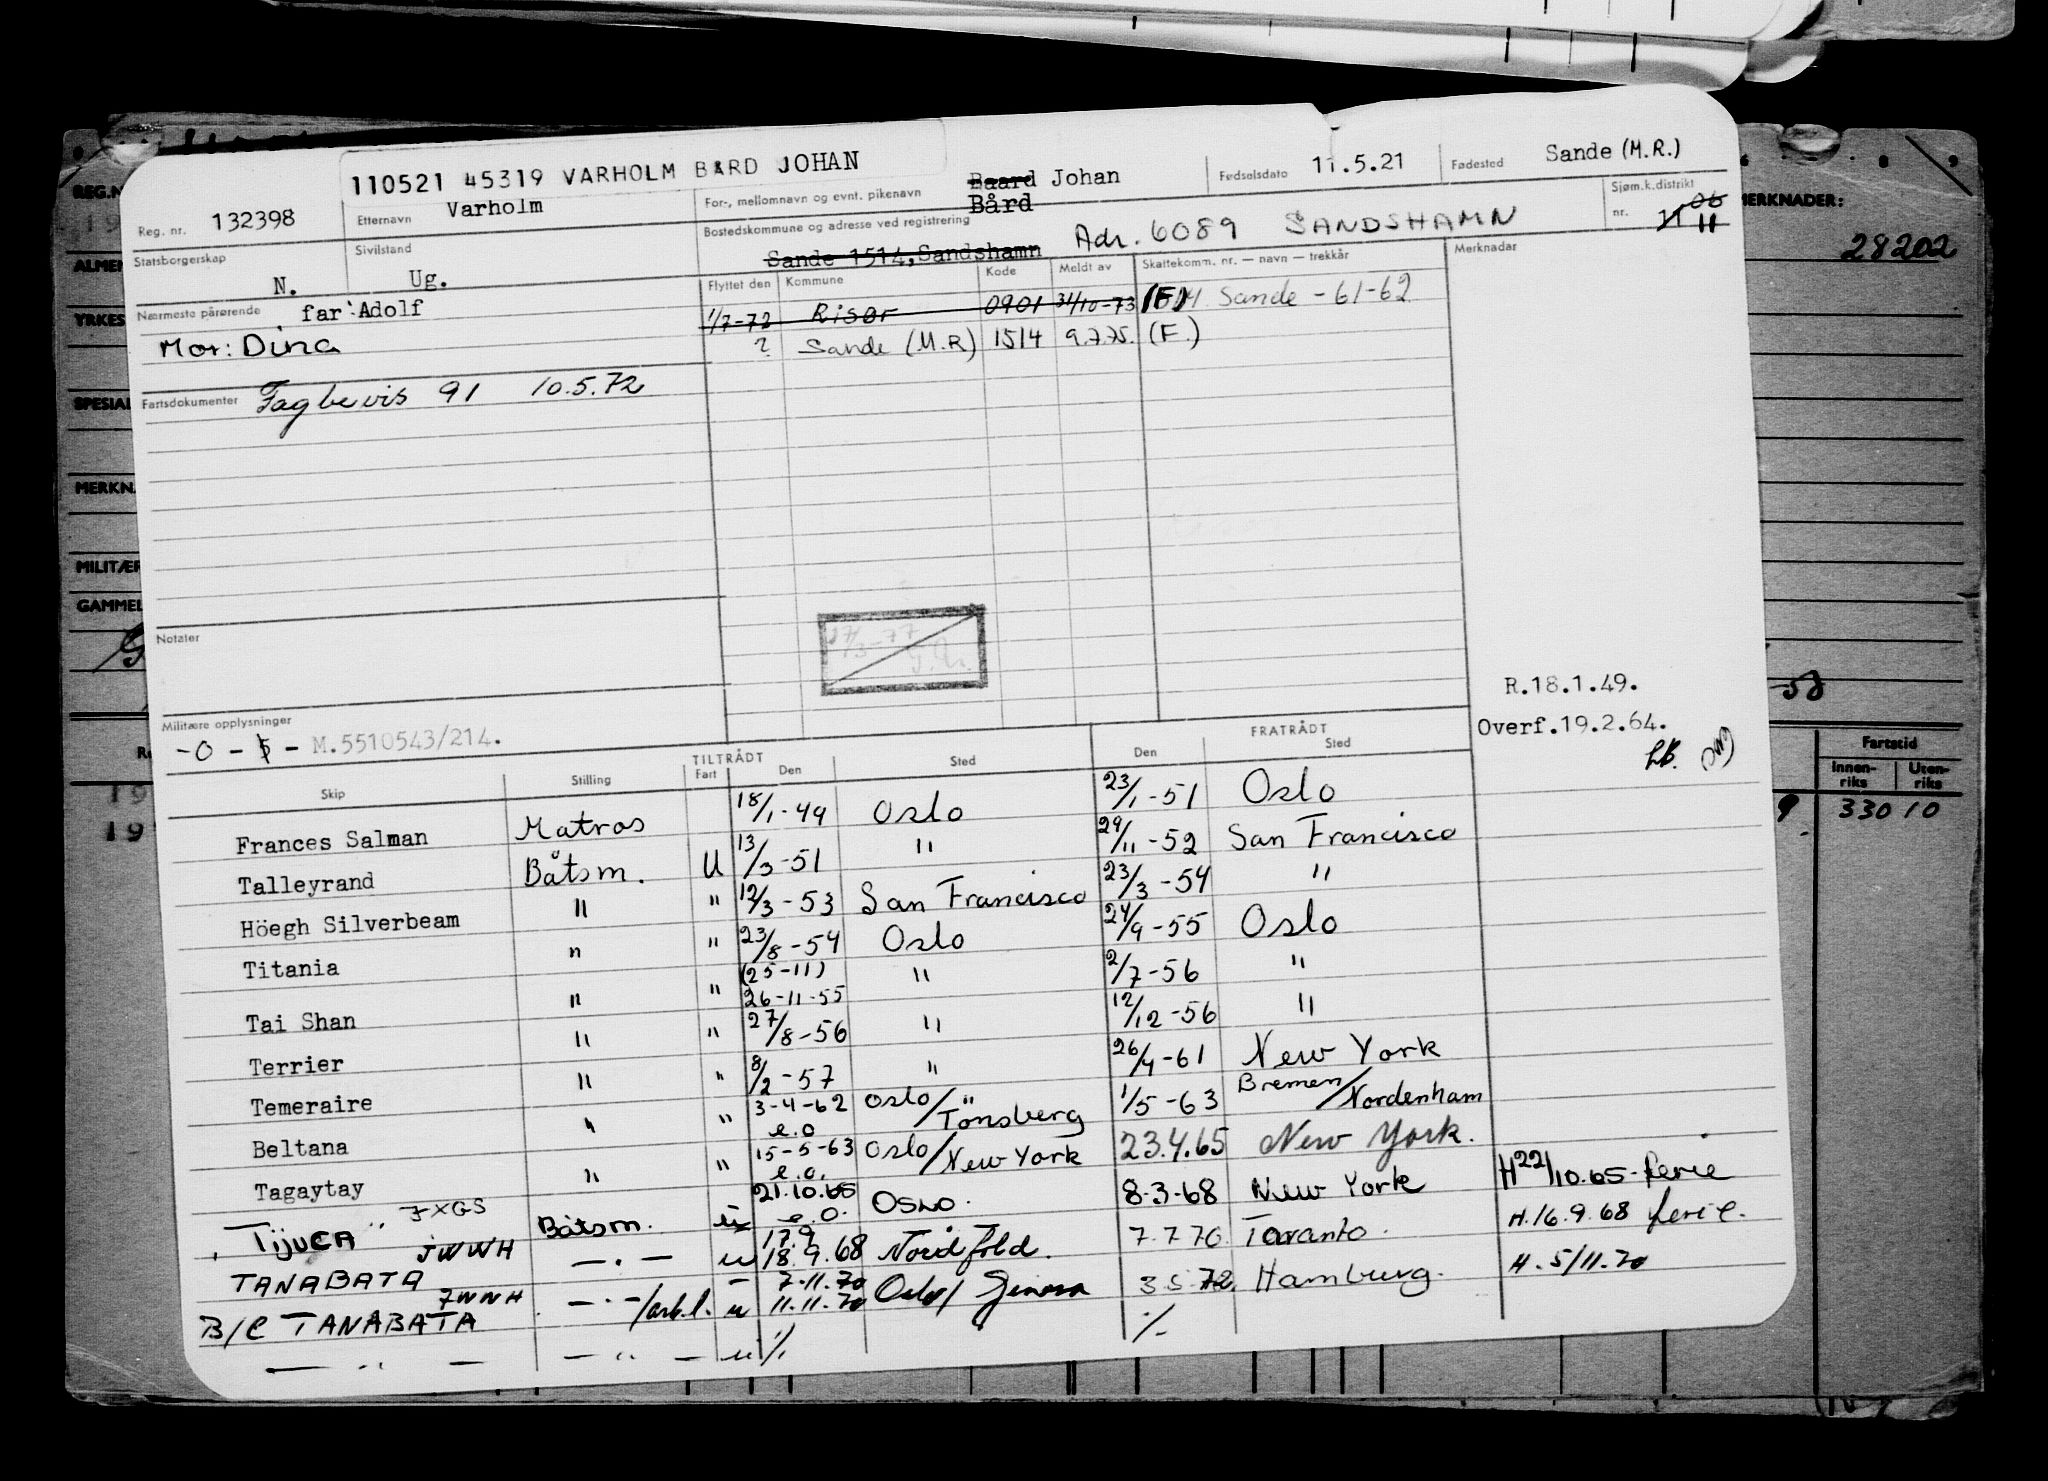 110521 45319 VARHOLM BÅRD JOHAN
Reg. nr. 132398
Etternavn Varholm
For-, mellomnavn og evnt. pikenavn Baard Johan
Bård
Fødselsdato 11.5.21
Fødested Sande (M.R.)
Statsborgerskap N.
Sivilstand Ug.
Bostedskommune og adresse ved registrering
Sande 1514, Sandshamn Adr. 6089 SANDSHAMN
Sjøm.k.distrikt nr. 11 06
11
Nærmeste pårørende far Adolf
Mor: Dina
Flyttet den Kommune Kode Meldt av Skattekomm. nr. — navn — trekkår Merknadar
1/7-72 Risør 0901 31/10-73 (F) Sande - 61-62
? Sande (M.R) 1514 9.7.75. (F.)
Fartsdokumenter Fagbevis 91 10.5.72
Notater
17/3-77
Militære opplysninger
-0 - 5 - M.5510543/214.
R.18.1.49.
Overf.19.2.64.
TILTRÅDT FRATRÅDT
Skip Stilling Fart Den Sted Den Sted
Frances Salman Matros 18/1-49 Oslo 23/1-51 Oslo
Talleyrand Båtsm. U 13/3-51 " 29/11-52 San Francisco
Höegh Silverbeam " " 12/3-53 San Francisco 23/3-54 "
Titania " " 23/8-54 Oslo 24/9-55 Oslo
Tai Shan " " (25-11) 26-11-55 " 2/7-56 "
Terrier " " 27/8-56 " 12/12-56 "
Temeraire " " 8/2-57 " 26/4-61 New York
Beltana " " 3-4-62 e.o Oslo/Tönsberg 1/5-63 Bremen/Nordenham
Tagaytay " " 15-5-63 e.o. Oslo/New York 23.4.65 New York.
"TIJUCA" JXGS Båtsm. u 21.10.65 e.o. Oslo. 8-3-68 New York H 22/10.65 - ferie
TANABATA JWWH — . — u 17.9 18.9.68 Nordfold. 7.7.70. Taranto. H. 16.9.68 ferie.
B/C TANABATA JWNH — . —/arb.l. u 7.11.70 11.11.70 Oslo/Genova 3.5.72. Hamburg. H. 5/11.70
— " — — " — u 1/1 -/-
REG.N
ALMEN
YRKES
SPESIAL
MERKNA
MILITÆR
GAMMEL
MERKNADER:
28202
Fartstid
Innenriks Utenriks
330 10